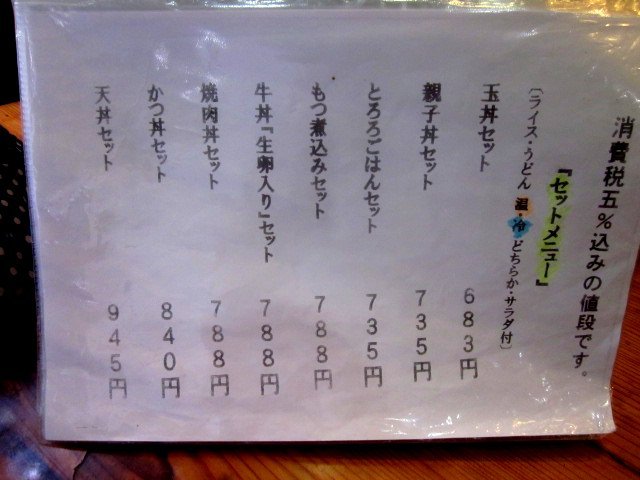 消費税五%込みの値段です。
『セットメニュー』
〔ライス・うどん 温・冷 どちらか・サラダ付〕
玉丼セット 683円
親子丼セット 735円
とろろごはんセット 735円
もつ煮込みセット 788円
牛丼『生卵入り』セット 788円
焼肉丼セット 788円
かつ丼セット 840円
天丼セット 945円